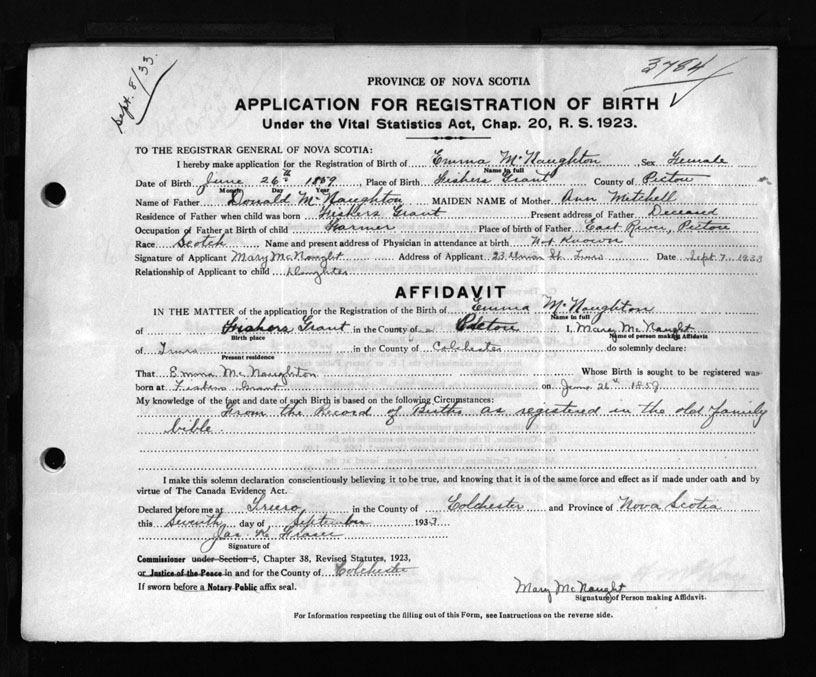 Sept. 8/33
3784
PROVINCE OF NOVA SCOTIA
APPLICATION FOR REGISTRATION OF BIRTH
Under the Vital Statistics Act, Chap. 20, R. S. 1923.
TO THE REGISTRAR GENERAL OF NOVA SCOTIA:
I hereby make application for the Registration of Birth of Emma McNaughton, Sex Female
Name in full
Date of Birth June 26th 1859, Place of Birth Fishers Grant County of Pictou
Month Day Year
Name of Father Donald McNaughton MAIDEN NAME of Mother Ann Mitchell
Residence of Father when child was born Fishers Grant Present address of Father Deceased
Occupation of Father at Birth of child Farmer Place of birth of Father East River, Pictou
Race Scotch Name and present address of Physician in attendance at birth Not Known
Signature of Applicant Mary McNaught Address of Applicant 23 Union St. Truro Date Sept. 7. 1933
Relationship of Applicant to child Daughter
AFFIDAVIT
IN THE MATTER of the application for the Registration of the Birth of Emma McNaughton
Name in full
of Fishers Grant in the County of Pictou I, Mary McNaught
Birth place Name of person making Affidavit
of Truro in the County of Colchester do solemnly declare:
Present residence
That Emma McNaughton Whose Birth is sought to be registered was
born at Fishers Grant on June 26th 1859
My knowledge of the fact and date of such Birth is based on the following Circumstances:
From the Record of Births as registered in the old family
bible
I make this solemn declaration conscientiously believing it to be true, and knowing that it is of the same force and effect as if made under oath and by
virtue of The Canada Evidence Act.
Declared before me at Truro in the County of Colchester and Province of Nova Scotia
this Seventh day of September 1933
Jas. Fraser
Signature of
Commissioner under Section 5, Chapter 38, Revised Statutes, 1923,
or Justice of the Peace in and for the County of Colchester
If sworn before a Notary Public affix seal.
Mary McNaught
Signature of Person making Affidavit.
For Information respecting the filling out of this Form, see Instructions on the reverse side.